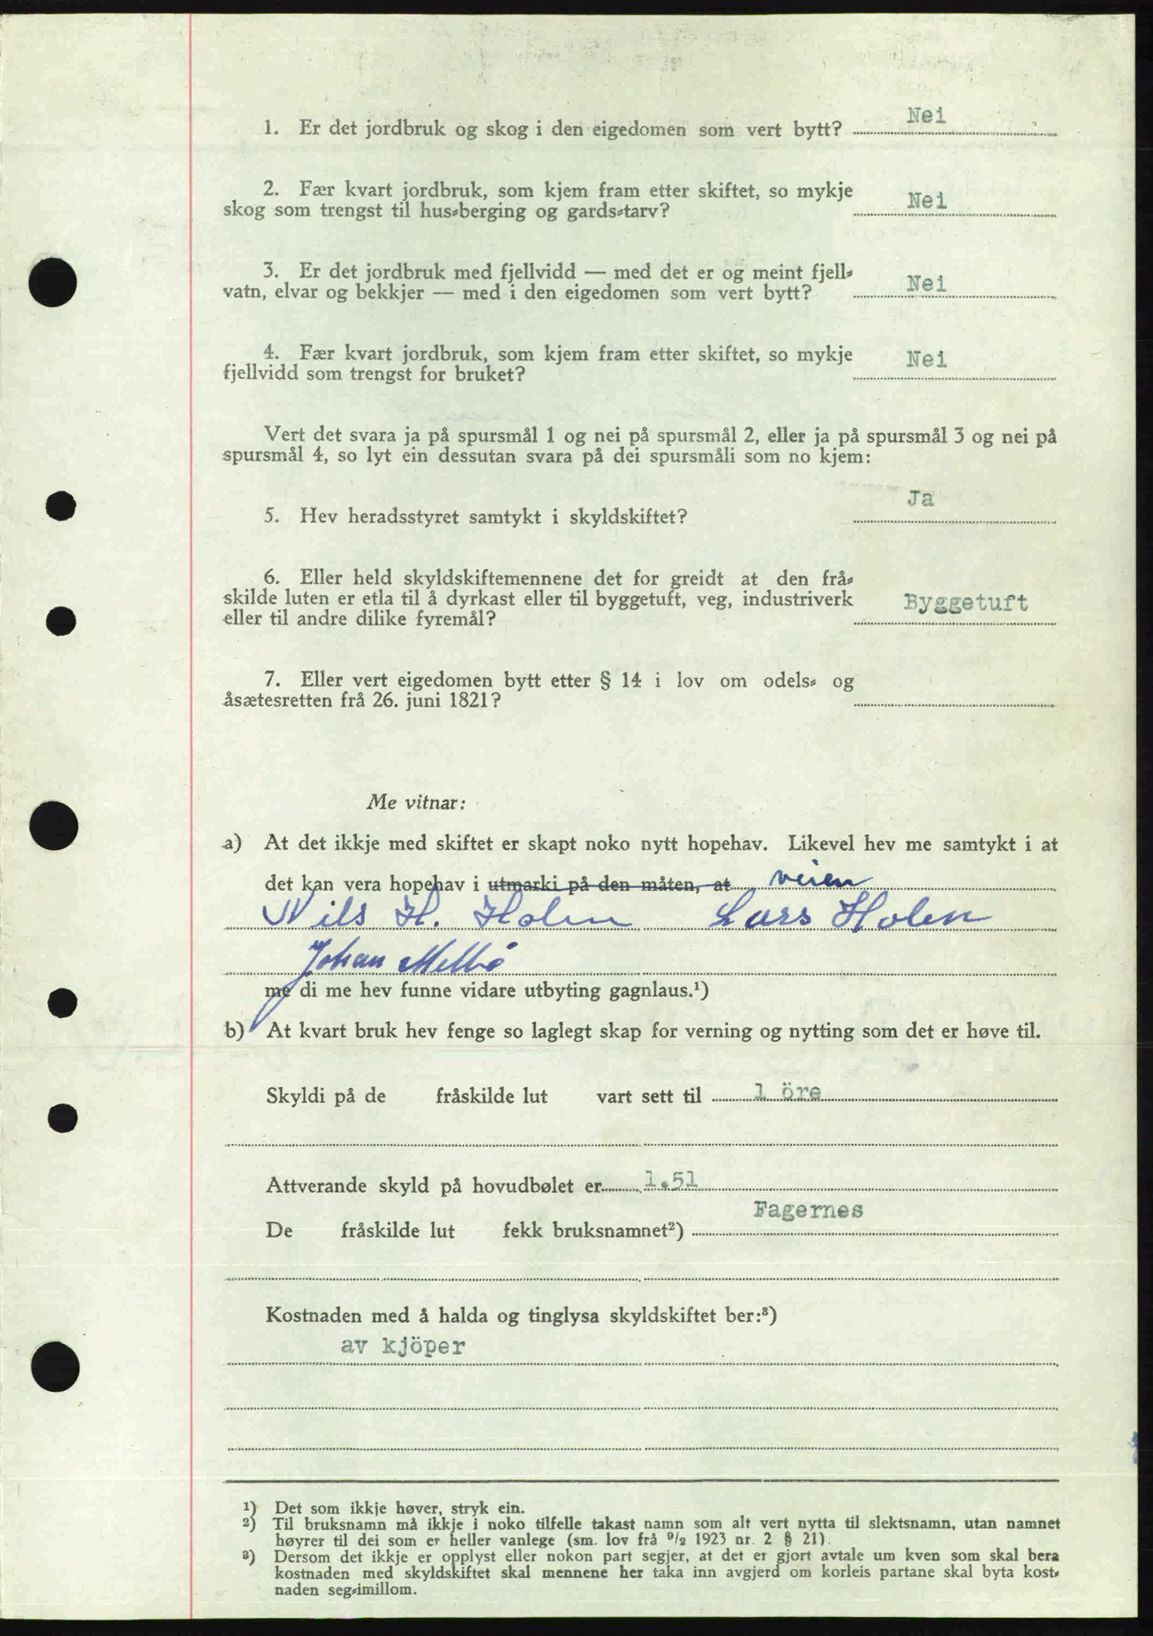 1. Er det jordbruk og skog i den eigedomen som vert bytt? Nei
2. Fær kvart jordbruk, som kjem fram etter skiftet, so mykje
skog som trengst til hus-berging og gards-tarv? Nei
3. Er det jordbruk med fjellvidd — med det er og meint fjell-
vatn, elvar og bekkjer — med i den eigedomen som vert bytt? Nei
4. Fær kvart jordbruk, som kjem fram etter skiftet, so mykje
fjellvidd som trengst for bruket? Nei
Vert det svara ja på spursmål 1 og nei på spursmål 2, eller ja på spursmål 3 og nei på
spursmål 4, so lyt ein dessutan svara på dei spursmåli som no kjem:
5. Hev heradsstyret samtykt i skyldskiftet? Ja
6. Eller held skyldskiftemennene det for greidt at den frå-
skilde luten er etla til å dyrkast eller til byggetuft, veg, industriverk
eller til andre dilike fyremål? Byggetuft
7. Eller vert eigedomen bytt etter § 14 i lov om odels- og
åsætesretten frå 26. juni 1821?
Me vitnar:
a) At det ikkje med skiftet er skapt noko nytt hopehav. Likevel hev me samtykt i at
det kan vera hopehav i utmarki på den måten, at veien
Nils H. Holen Lars Holen
Johan Melbö
me di me hev funne vidare utbyting gagnlaus.¹)
b) At kvart bruk hev fenge so laglegt skap for verning og nytting som det er høve til.
Skyldi på de fråskilde lut vart sett til 1 öre
Attverande skyld på hovudbølet er 1.51
De fråskilde lut fekk bruksnamnet²) Fagernes
Kostnaden med å halda og tinglysa skyldskiftet ber:³)
av kjöper
¹) Det som ikkje høver, stryk ein.
²) Til bruksnamn må ikkje i noko tilfelle takast namn som alt vert nytta til slektsnamn, utan namnet
høyrer til dei som er heller vanlege (sm. lov frå ⁹/₂ 1923 nr. 2 § 21).
³) Dersom det ikkje er opplyst eller nokon part segjer, at det er gjort avtale um kven som skal bera
kostnaden med skyldskiftet skal mennene her taka inn avgjerd om korleis partane skal byta kost-
naden seg-imillom.